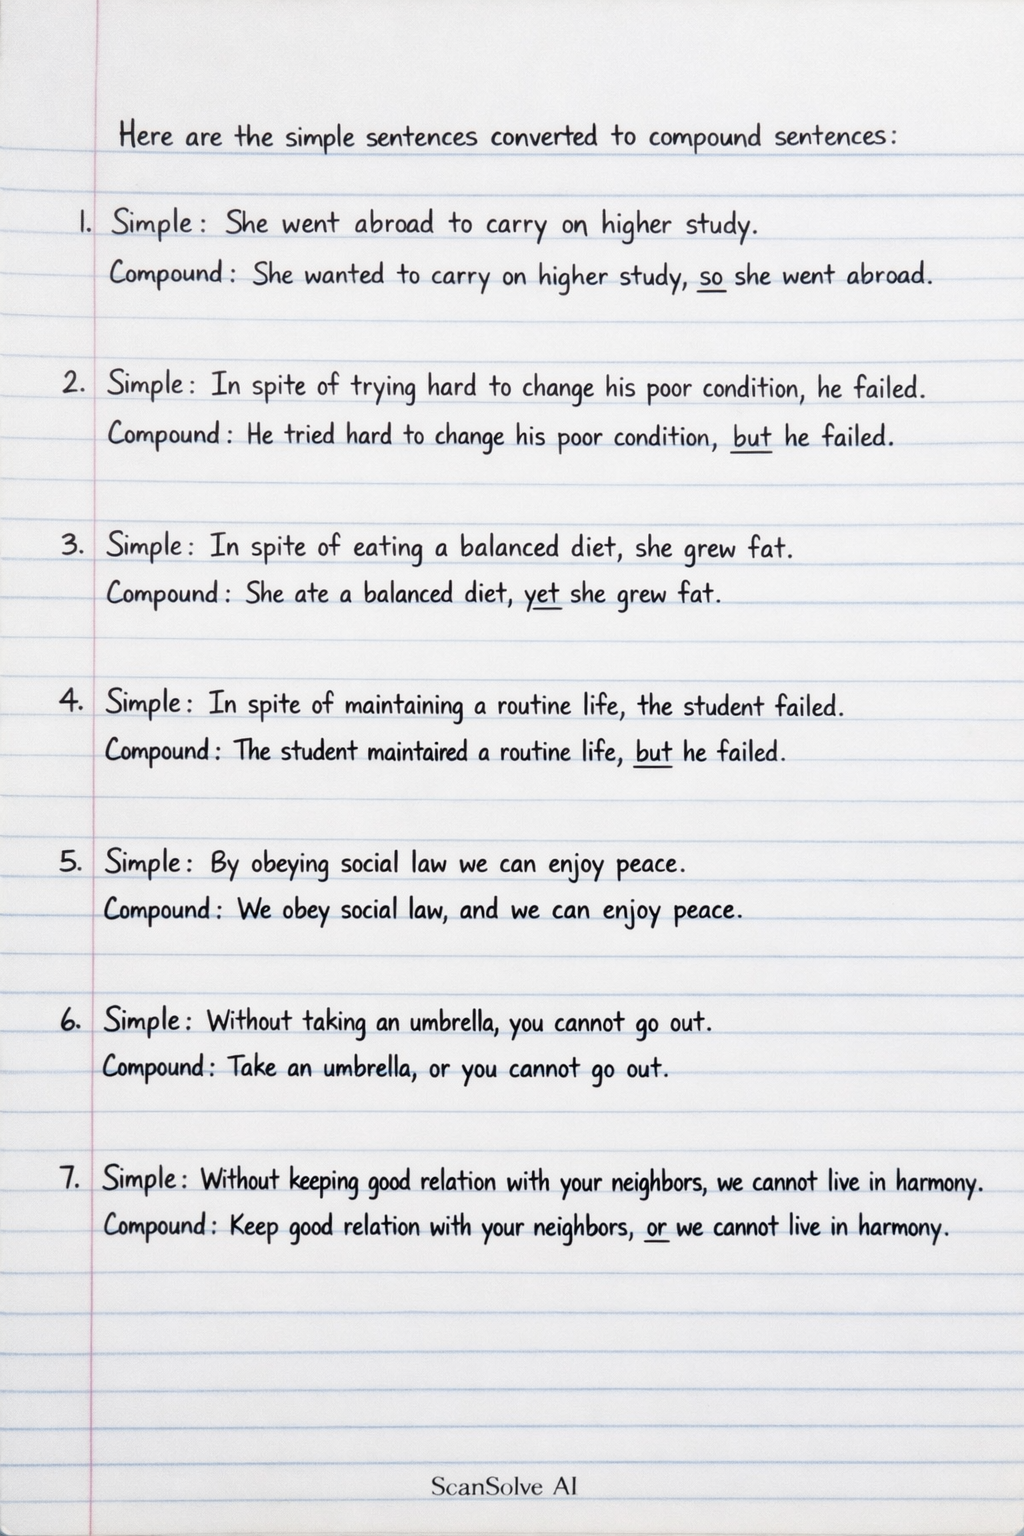 Here are the simple sentences converted to compound sentences:
1. Simple: She went abroad to carry on higher study.
Compound: She wanted to carry on higher study, so she went abroad.
2. Simple: In spite of trying hard to change his poor condition, he failed.
Compound: He tried hard to change his poor condition, but he failed.
3. Simple: In spite of eating a balanced diet, she grew fat.
Compound: She ate a balanced diet, yet she grew fat.
4. Simple: In spite of maintaining a routine life, the student failed.
Compound: The student maintaired a routine life, but he failed.
5. Simple: By obeying social law we can enjoy peace.
Compound: We obey social law, and we can enjoy peace.
6. Simple: Without taking an umbrella, you cannot go out.
Compound: Take an umbrella, or you cannot go out.
7. Simple: Without keeping good relation with your neighbors, we cannot live in harmony.
Compound: Keep good relation with your neighbors, or we cannot live in harmony.
ScanSolve AI